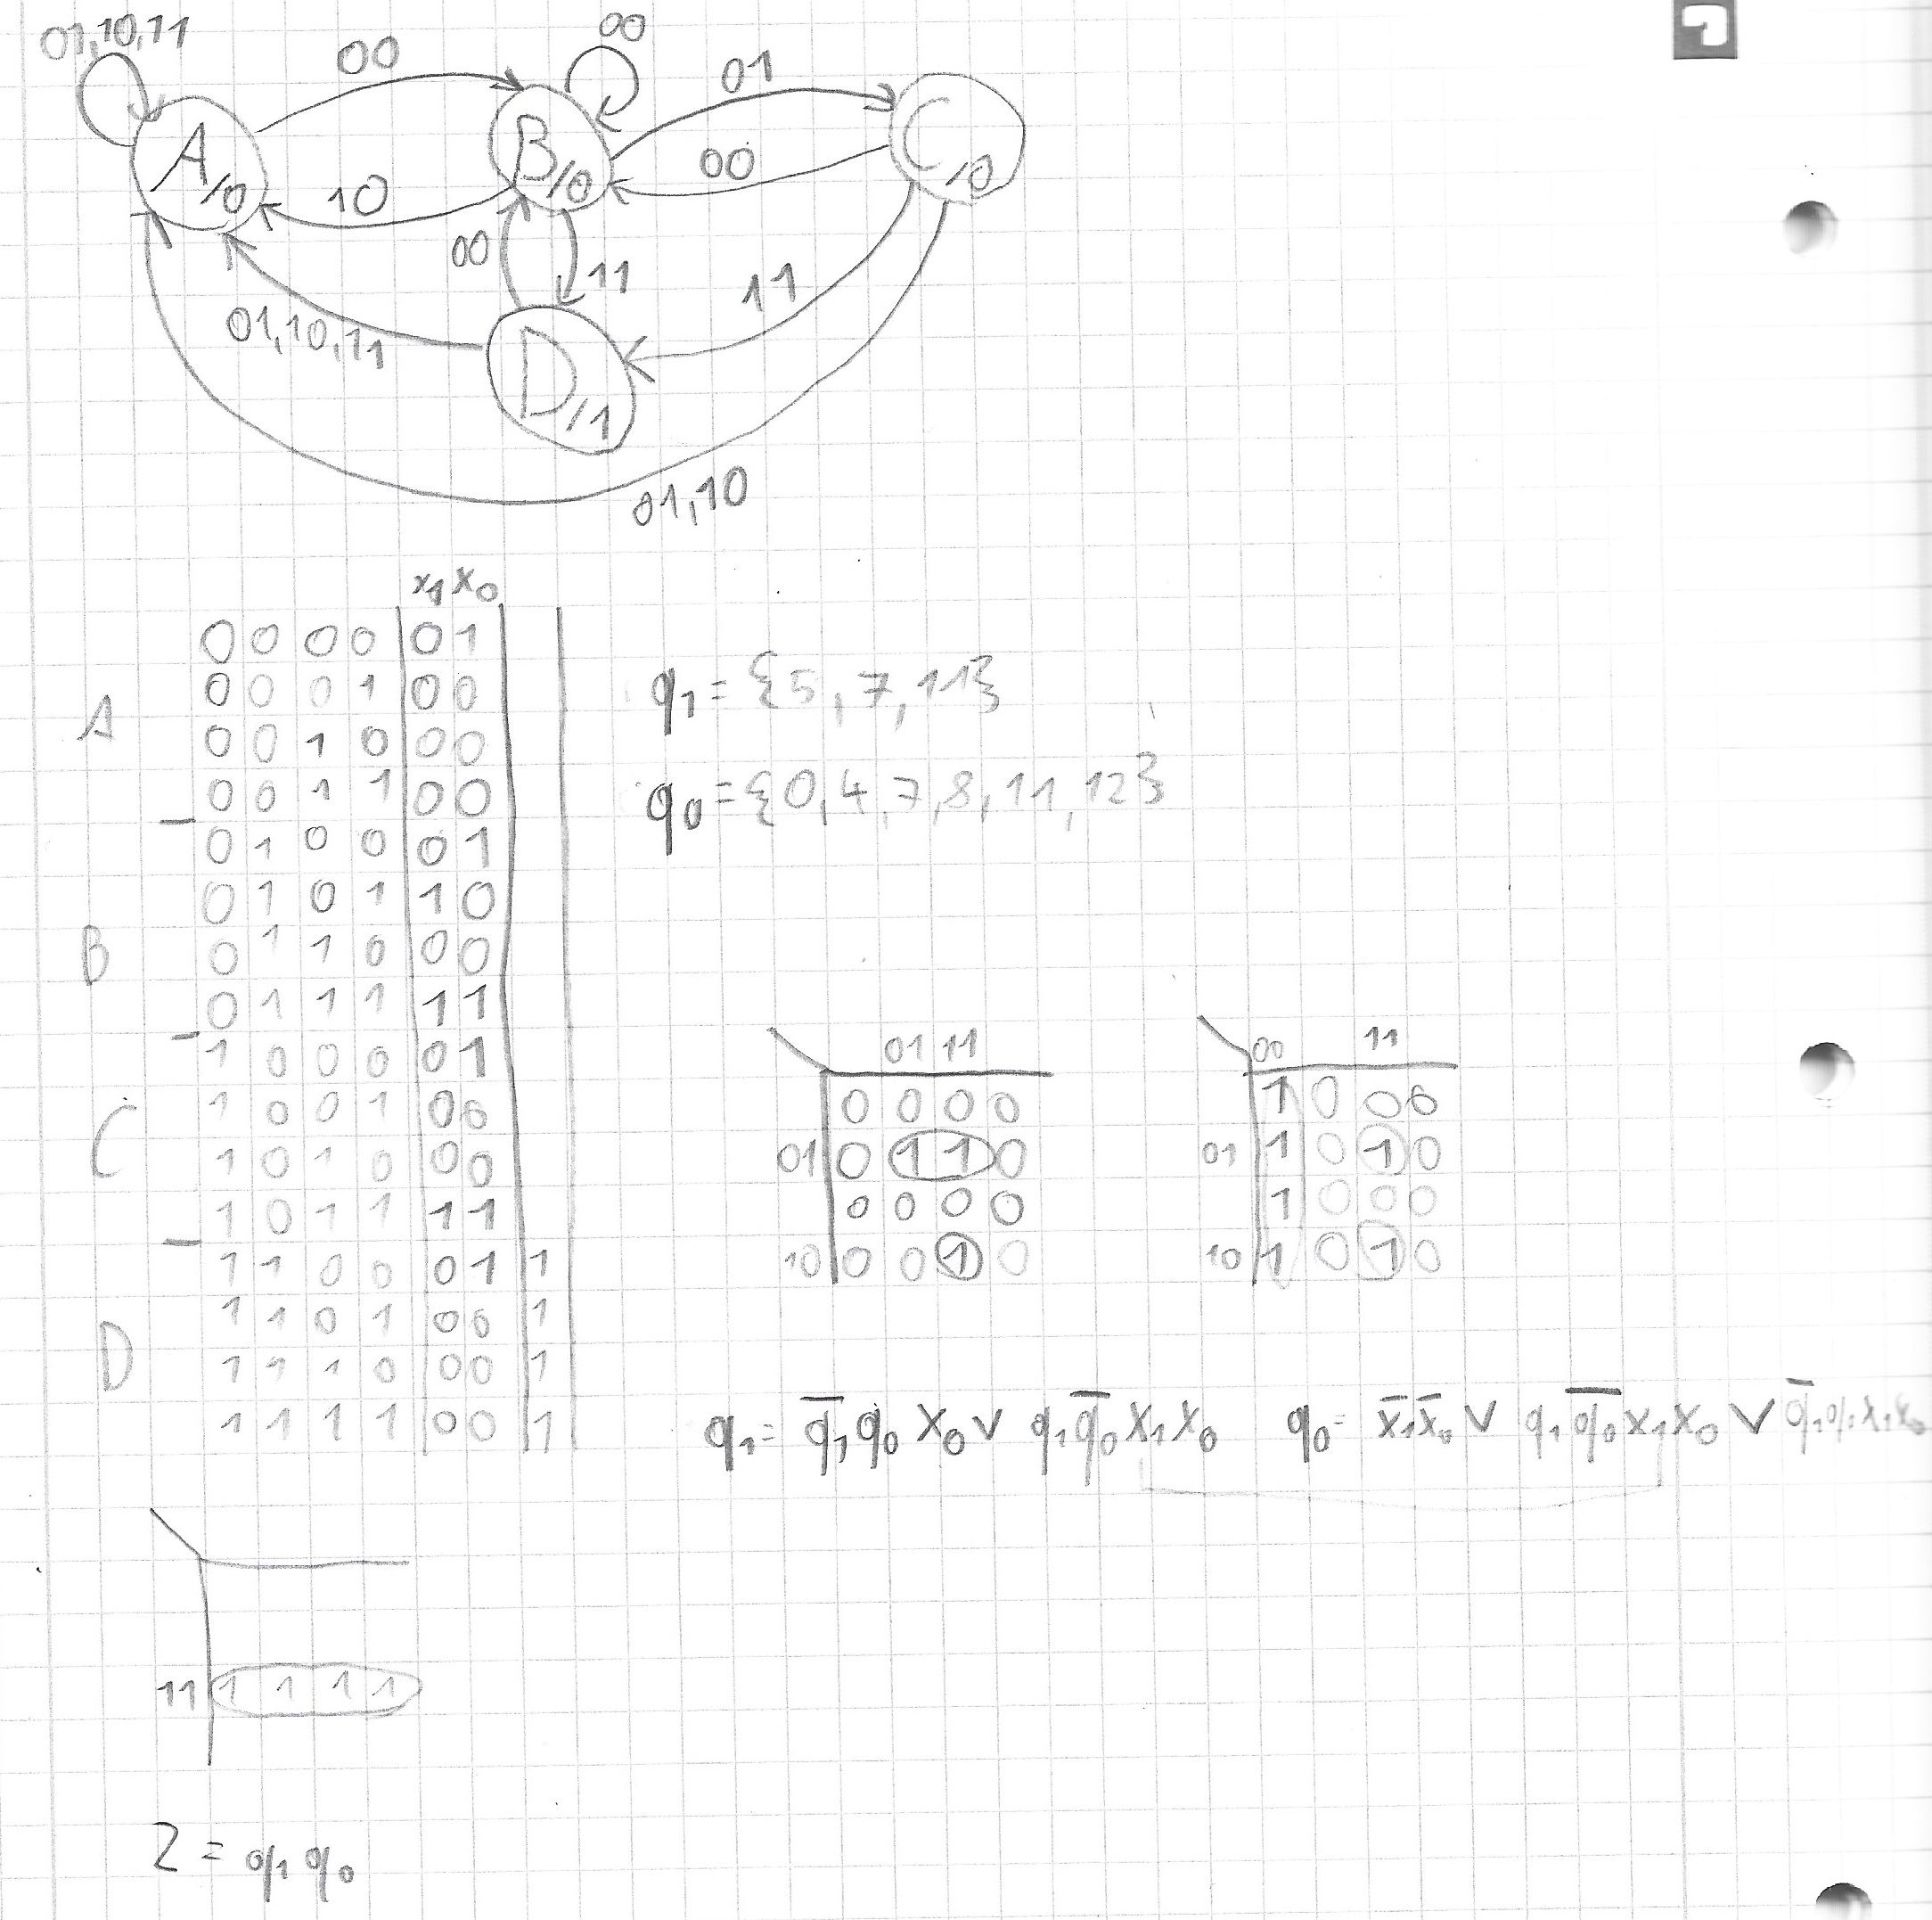 01,10,11 00 00 01
A/0 B/0 C/0
10 00
00 11 11
01,10,11
D/1
01,10
x₁ x₀
0 0 0 0 0 1
0 0 0 1 0 0
A
0 0 1 0 0 0
0 0 1 1 0 0
0 1 0 0 0 1
0 1 0 1 1 0
B
0 1 1 0 0 0
0 1 1 1 1 1
1 0 0 0 0 1
1 0 0 1 0 0
C
1 0 1 0 0 0
1 0 1 1 1 1
1 1 0 0 0 1 1
1 1 0 1 0 0 1
D
1 1 1 0 0 0 1
1 1 1 1 0 0 1
q₁ = {5, 7, 11}
q₀ = {0, 4, 7, 8, 11, 12}
01 11
0 0 0 0
01 0 1 1 0
0 0 0 0
10 0 0 1 0
00 11
1 0 0 0
01 1 0 1 0
1 0 0 0
10 1 0 1 0
q₁ = q̄₁ q₀ x₀ ∨ q₁ q̄₀ x₁ x₀
q₀ = x̄₁ x̄₀ ∨ q₁ q̄₀ x₁ x₀ ∨ q̄₁ q₀ x₁ x₀
11 1 1 1 1
Z = q₁ q₀